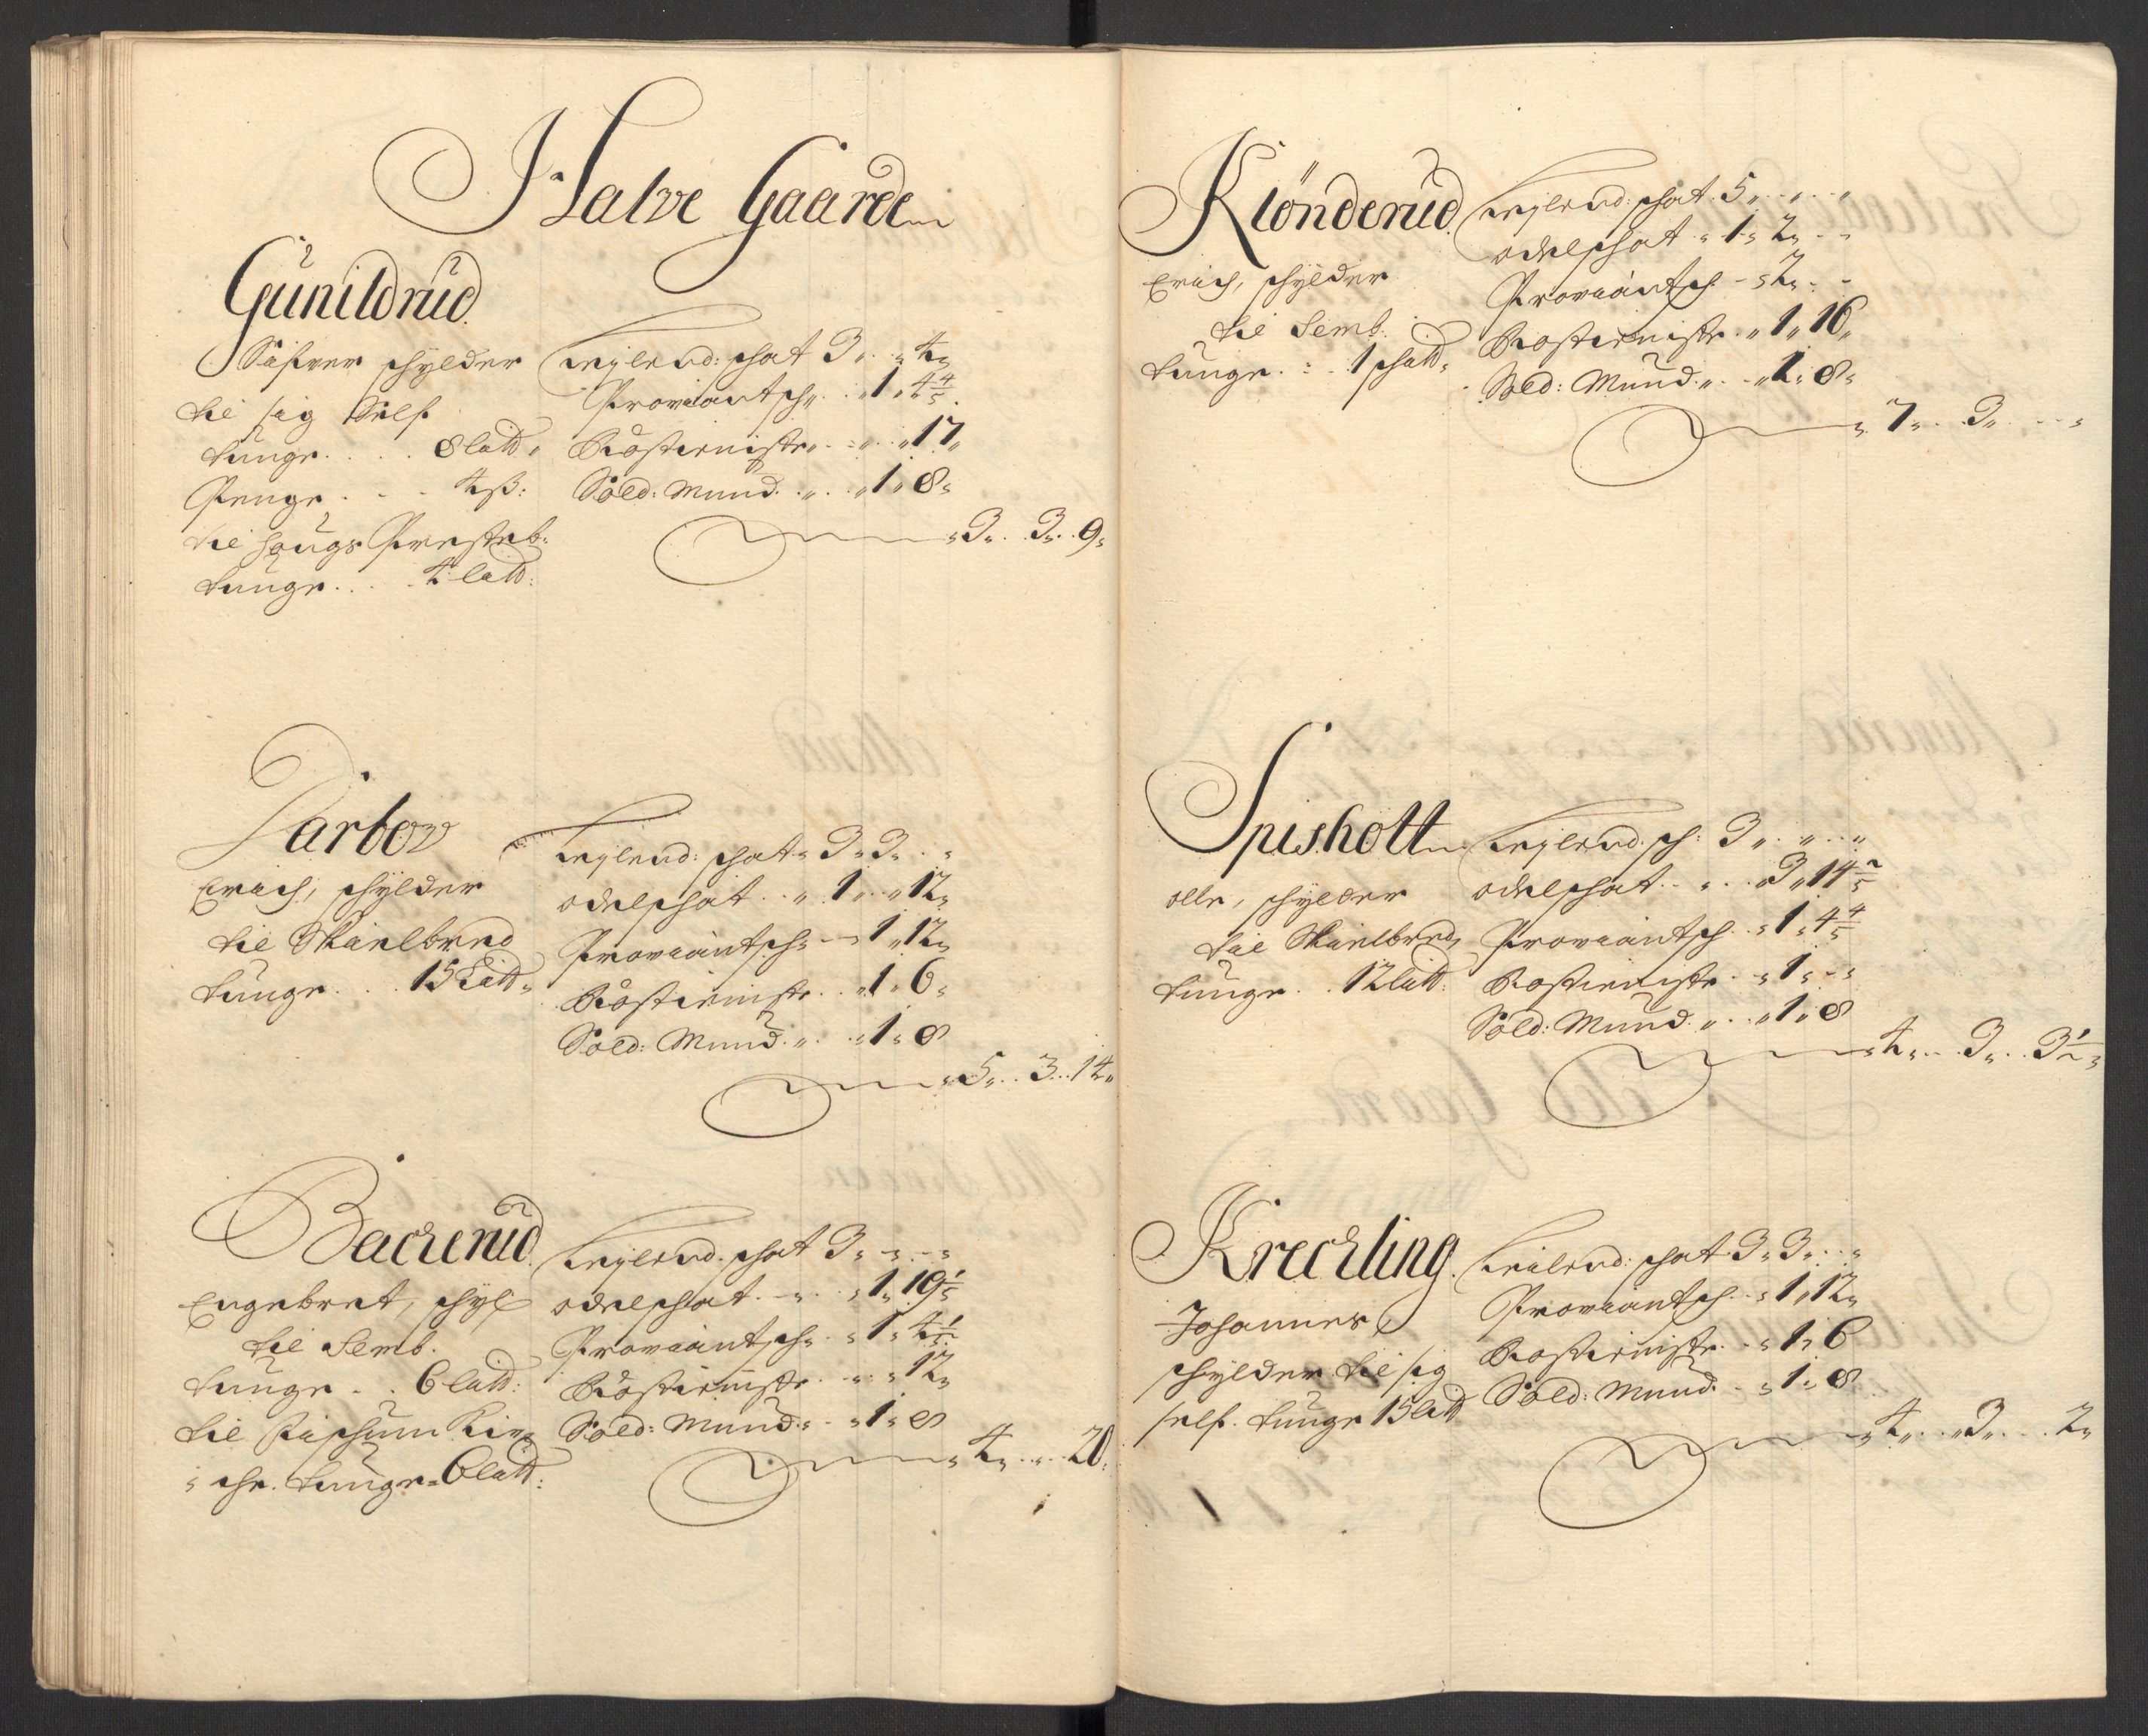 Halve Gaarde
Gunildrud
schylder
til sig Self
tunge . . . 8 latt,
Penge . . . 4 ß:
til Hougs Presteb:
tunge . . . 4 latt:
Leylend: schat 3 „ „ 4 „
Proviantsch „ „ 1 „ 4 4/5
Rostienistr „ „ 17 „
Sold: Mund „ „ 1 „ 8 „
3 „ 3 „ 9 „
Darbov
Erich, schylder
til Skielbred
tunge . . 15 Latt „
Leylend: schat „ 3 „ 3 „ „
odelschat „ 1 „ „ 12 „
Proviantsch „ 1 „ 12 „
Rostienistr „ 1 „ 6 „
Sold: Mund „ „ 1 „ 8
5 „ 3 „ 14 „
Bacherud
Engebret, schyl
til Semb.
tunge . . 6 latt:
til Fischum Kir
che. tunge 6 latt:
Leylend. schat 3 „ „ „
odelschat „ „ 1 „ 19 1/5
Proviantsch „ 1 „ 4
Rostienistr „ „ 12 „
Sold: Mund „ „ 1 „ 8
4 „ „ 20 „
Klönderud
Erich, schylder
til Semb:
tunge . : . 1 schatt „
Leylend: schat 5 „ „ „
odelschat „ 1 „ 2 „ „
Proviantsch „ 2 „ „
Rostienistr „ 1 „ 16 „
Sold: Mund „ „ 1 „ 8 „
7 „ 3 „ „
Spisholt
olle, schylder
til Skielbred,
tunge . . 12 latt:
Leylend. sch: 3 „ „ „
odelschat „ „ 3 „ 14 2/5
Proviantsch „ 1 „ 4 4/5
Rostienistr „ 1 „ „
Sold: Mund „ „ 1 „ 8
4 „ 3 „ 3 1/2 „
Krechling
Johannes
schylder til sig
self. tunge 15 latt
Leilend: schat 3 „ 3 „ „
Proviantsch „ 1 „ 12 „
Rostienistr „ 1 „ 6
Sold: Mund „ 1 „ 8
4 „ 3 „ 2 „